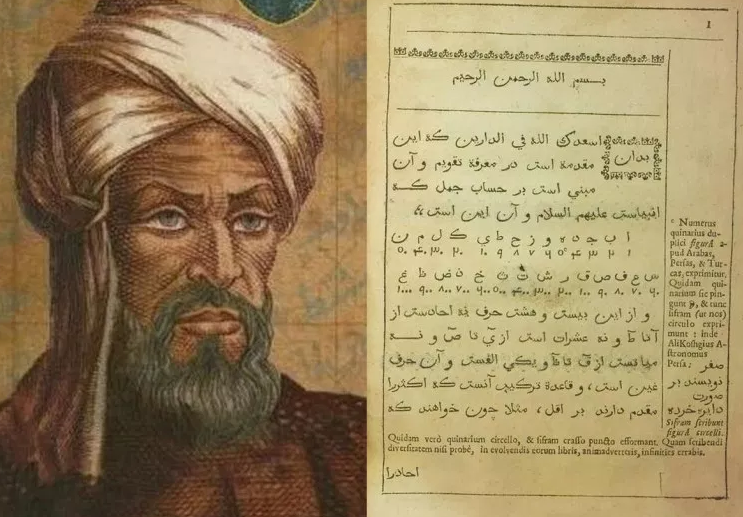 1
بسم الله الرحمن الرحيم
بدان اسعدك الله في الدارين كه اين
مقدمة است در معرفة تقويم و آن
مبني است بر حساب جمل كه
انبياست عليهم السلام و آن اين است
ا ب ج د ه و ز ح ط ي ك ل م ن
س ع ف ص ق ر ش ت ث خ ذ ض ظ غ
و از اين بيست و هشت حرف نه احادست از
آ تا ط و نه عشرات است از ي تا ص و نه
مياتست از ق تا ظ و يكي الفست و آن حرف
غين است، و قاعدة تركيب آنست كه اكثررا
مقدم دارند بر اقل، مثلا چون خواهند كه
Numerus
quinarius du-
plici figurâ a-
pud Arabas,
Persas, & Tur-
cas, exprimitur.
Quidam qui-
narium sic pin-
gunt & tunc
sifram (ut nos)
circulo expri-
munt: inde
AliKoshgius A-
stronomus
Persa: صفر
نويسند بر
صورت
دايره خرده
Sifram scribunt
figurâ circelli.
Quidam verò quinarium circello, & sifram crasso puncto efformant. Quam scribendi
diversitatem nisi probè, in evolvendis eorum libris, animadverteris, infinities errabis.
احادرا